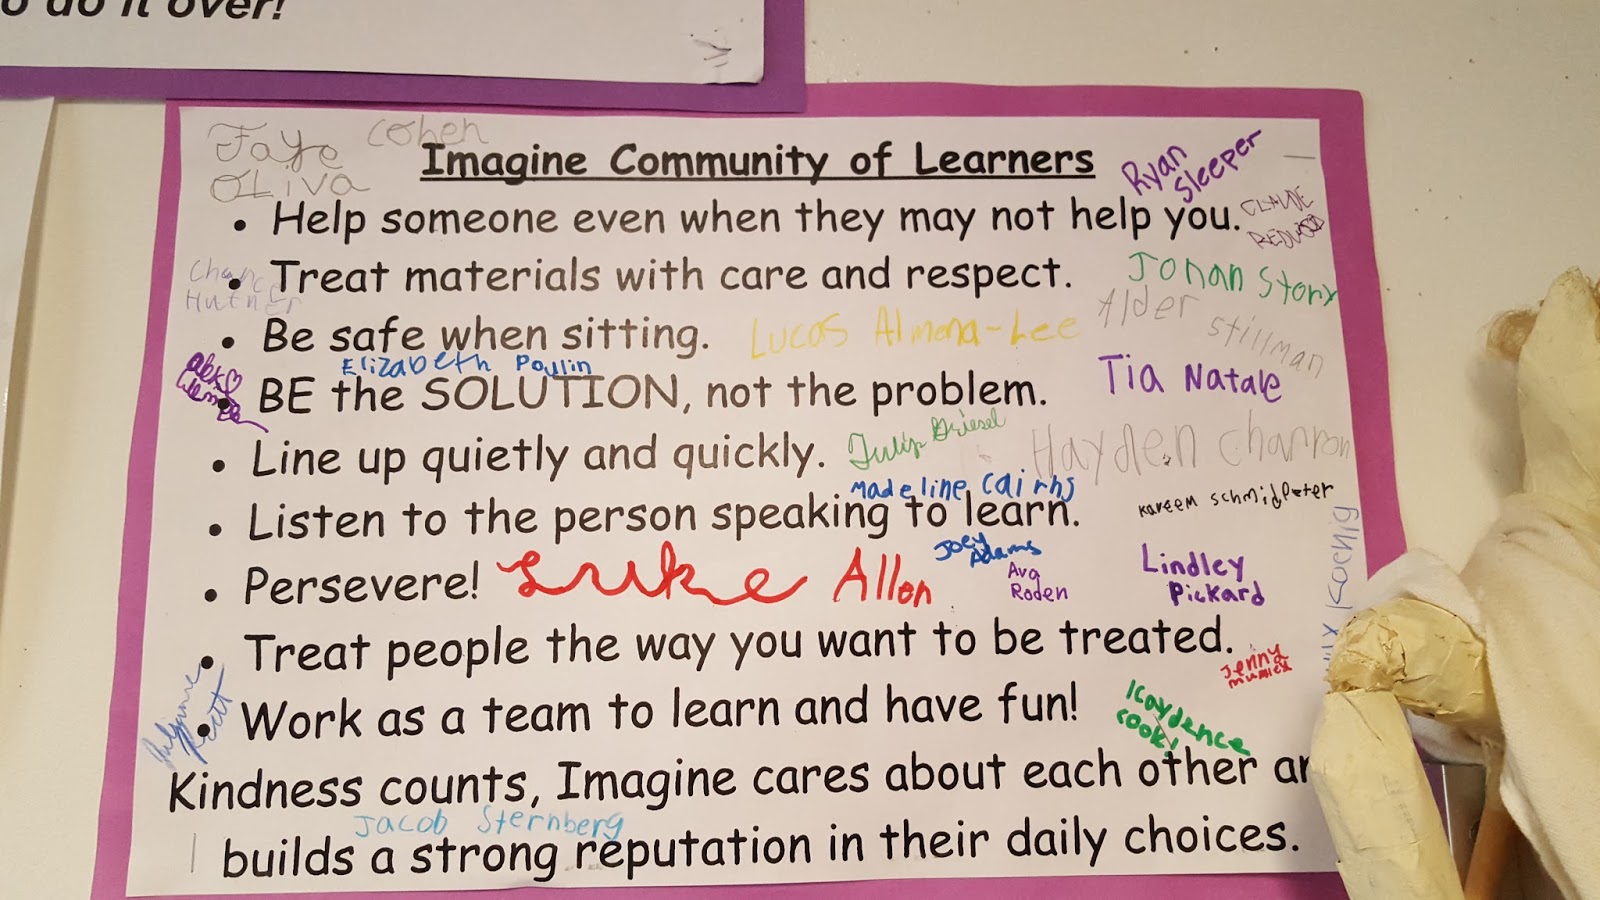 o do it over!
Faye cohen
OLiva
Imagine Community of Learners
Ryan
Sleeper
• Help someone even when they may not help you.
Chance
Hutner
• Treat materials with care and respect.
Jonan Story
Alder
Stillman
• Be safe when sitting.
Lucas Almena-Lee
Elizabeth Poulin
• BE the SOLUTION, not the problem.
Tia Natale
• Line up quietly and quickly.
Tulip Griesel
Hayden Charron
Madeline Cairns
• Listen to the person speaking to learn.
Kareem Schmidpeter
Koenig
• Persevere!
Luke Allen
Joey
Adams
Ava
Roden
Lindley
Pickard
• Treat people the way you want to be treated.
Jenny
• Work as a team to learn and have fun!
Kaydence
Cook!
Kindness counts, Imagine cares about each other
Jacob Sternberg
builds a strong reputation in their daily choices.